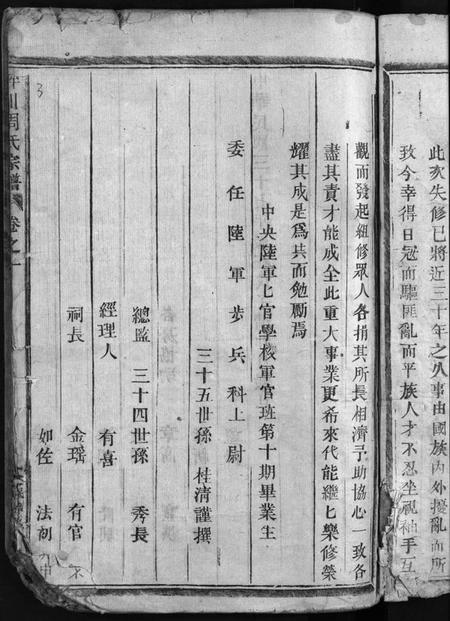 此亥失修已將近三十年之久事由國族內外擾亂而所
致今幸得日冠而驅匪亂而平族人才不忍坐視袖手互
觀而發起組修眾人各捐其所長相濟予助協心一致各
盡其責才能成全此重大事業更希來代能繼匕樂修榮
耀其成是為共而勉勵焉
中央陸軍匕官學校軍官班第十期畢業生
委任陸軍步兵科上尉
三十五世孫 桂清謹撰
總監 三十四世孫 秀長
經理人 有喜
祠長 金瑶 有官
如佐 法初
川周氏宗譜 卷之一
3